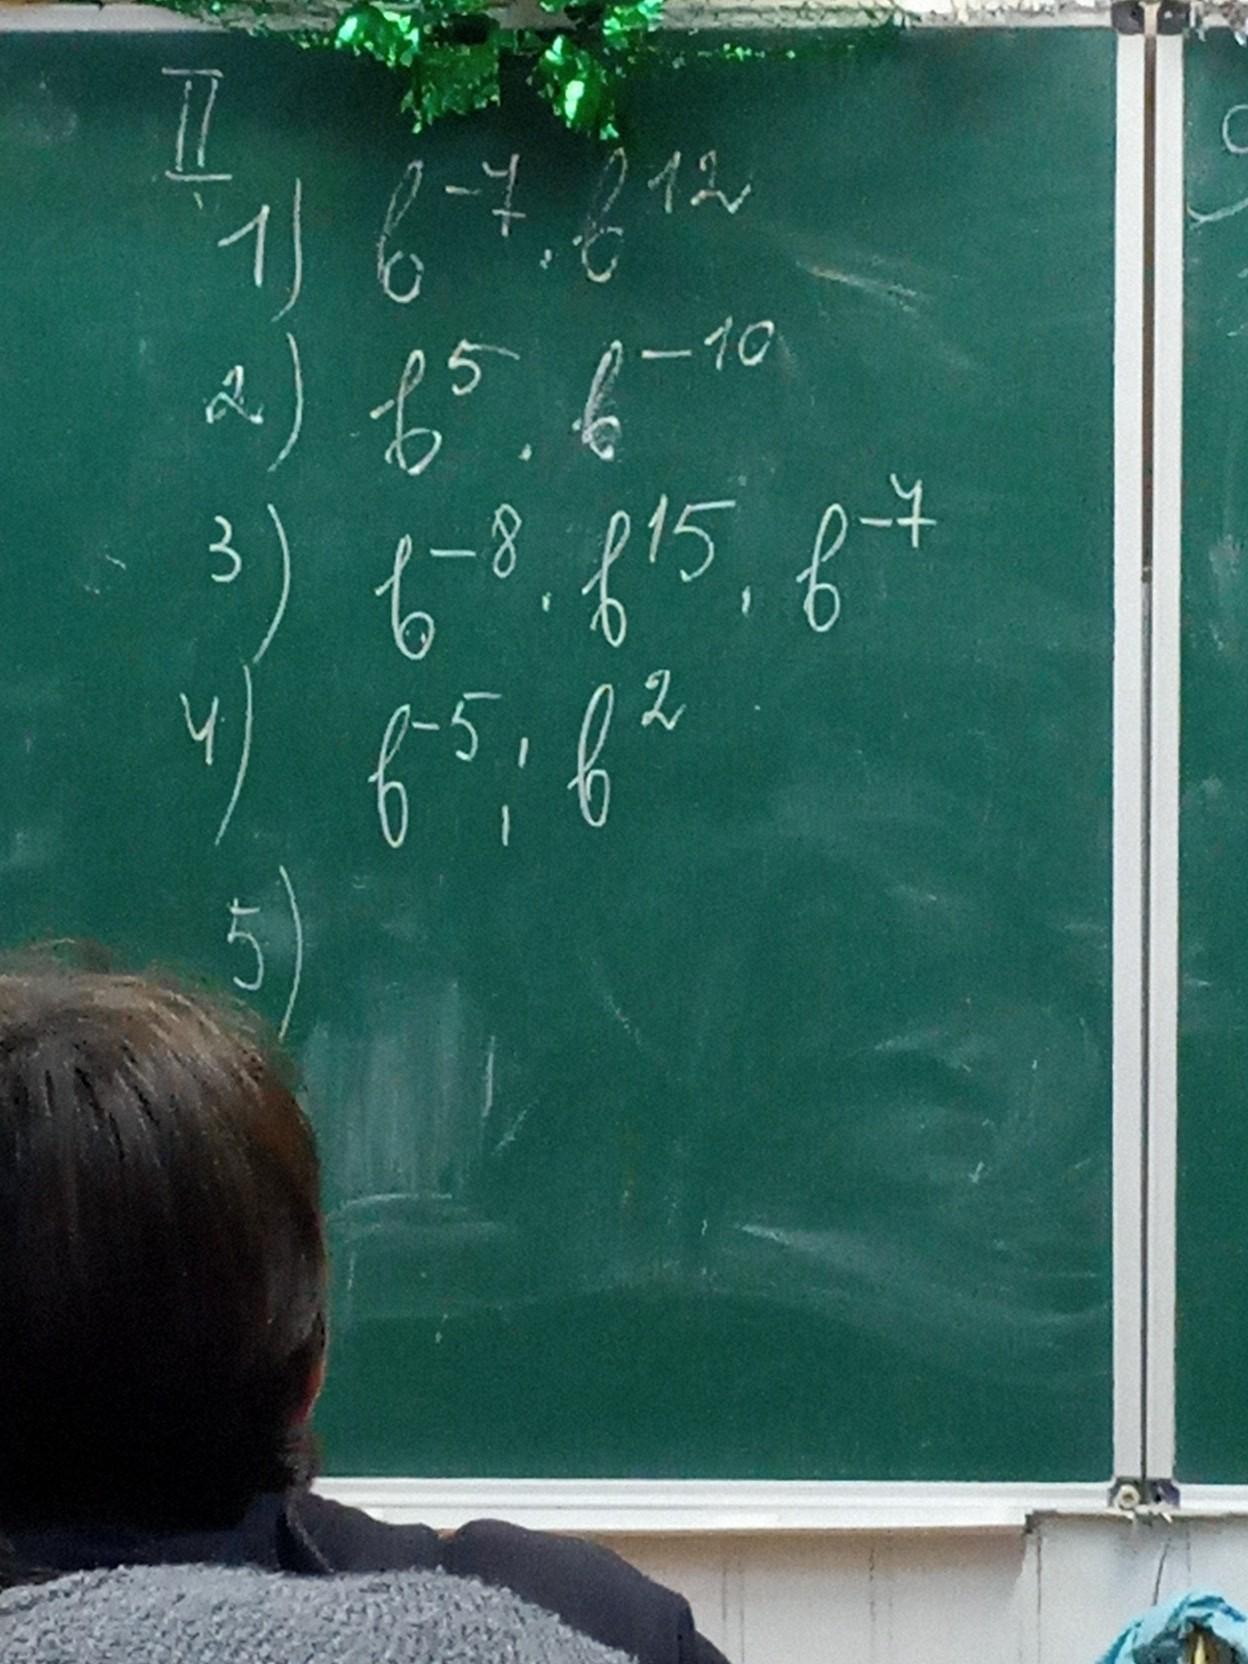 II
1) b⁻⁷ · b¹²
2) b⁵ · b⁻¹⁰
3) b⁻⁸ · b¹⁵ · b⁻⁷
4) b⁻⁵ : b²
5)